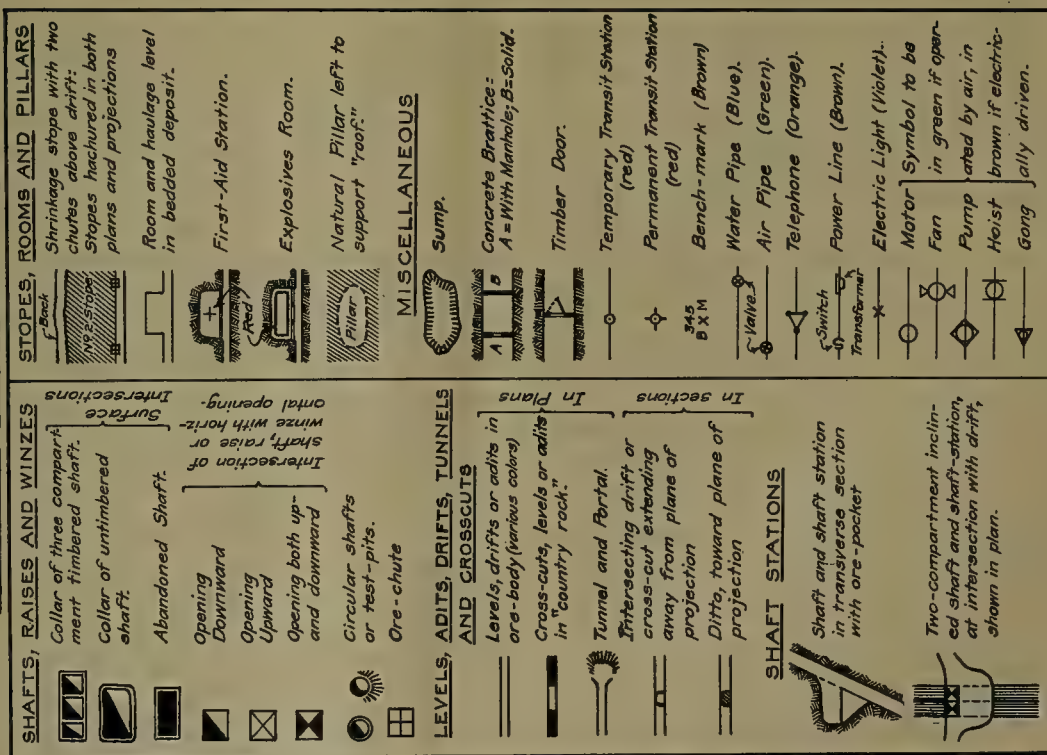 SHAFTS, RAISES AND WINZES
Collar of three compart-
ment timbered shaft.
Collar of untimbered
shaft.
Surface
Intersections
Abandoned Shaft.
Opening
Downward
Opening
Upward
Opening both up-
and downward
Intersection of
shaft, raise or
winze with horiz-
ontal opening.
Circular shafts
or test-pits.
Ore-chute
LEVELS, ADITS, DRIFTS, TUNNELS
AND CROSSCUTS
Levels, drifts or adits in
ore-body (various colors)
Cross-cuts, levels or adits
in "country rock."
In Plans
Tunnel and Portal.
Intersecting drift or
cross-cut extending
away from plane of
projection
Ditto, toward plane of
projection
In sections
SHAFT STATIONS
Shaft and shaft station
in transverse section
with ore-pocket
Two-compartment inclin-
ed shaft and shaft-station,
at intersection with drift,
shown in plan.
STOPES, ROOMS AND PILLARS
Back
No 2 Stope
Shrinkage stope with two
chutes above drift:
Stopes hachured in both
plans and projections
Room and haulage level
in bedded deposit.
First-Aid Station.
Red
Explosives Room.
Pillar
Natural Pillar left to
support "roof."
MISCELLANEOUS
Sump.
A B
Concrete Brattice:
A = With Manhole; B=Solid.
Timber Door.
Temporary Transit Station
(red)
Permanent Transit Station
(red)
345
B X M
Bench-mark (Brown)
Water Pipe (Blue).
Valve
Air Pipe (Green).
Telephone (Orange).
Switch
Transformer
Power Line (Brown).
Electric Light (Violet).
Motor
Fan
Pump
Hoist
Gong
Symbol to be
in green if oper-
ated by air, in
brown if electric-
ally driven.